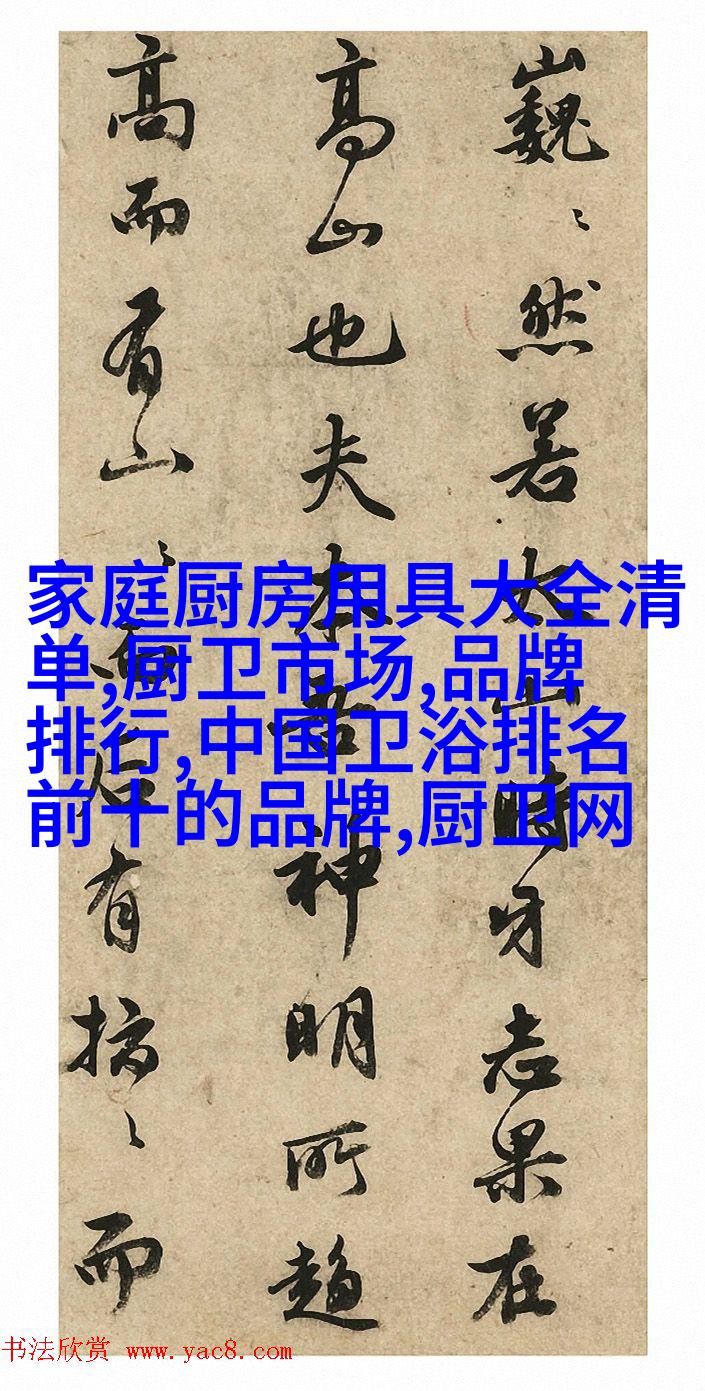 巍〻然若太山時牙志果在
高山也夫本吾神明所趨
高而有山〻高而后有搞〻而
家庭厨房用具大全清
单,厨卫市场,品牌
排行,中国卫浴排名
前十的品牌,厨卫网
书法欣赏 www.yac8.com